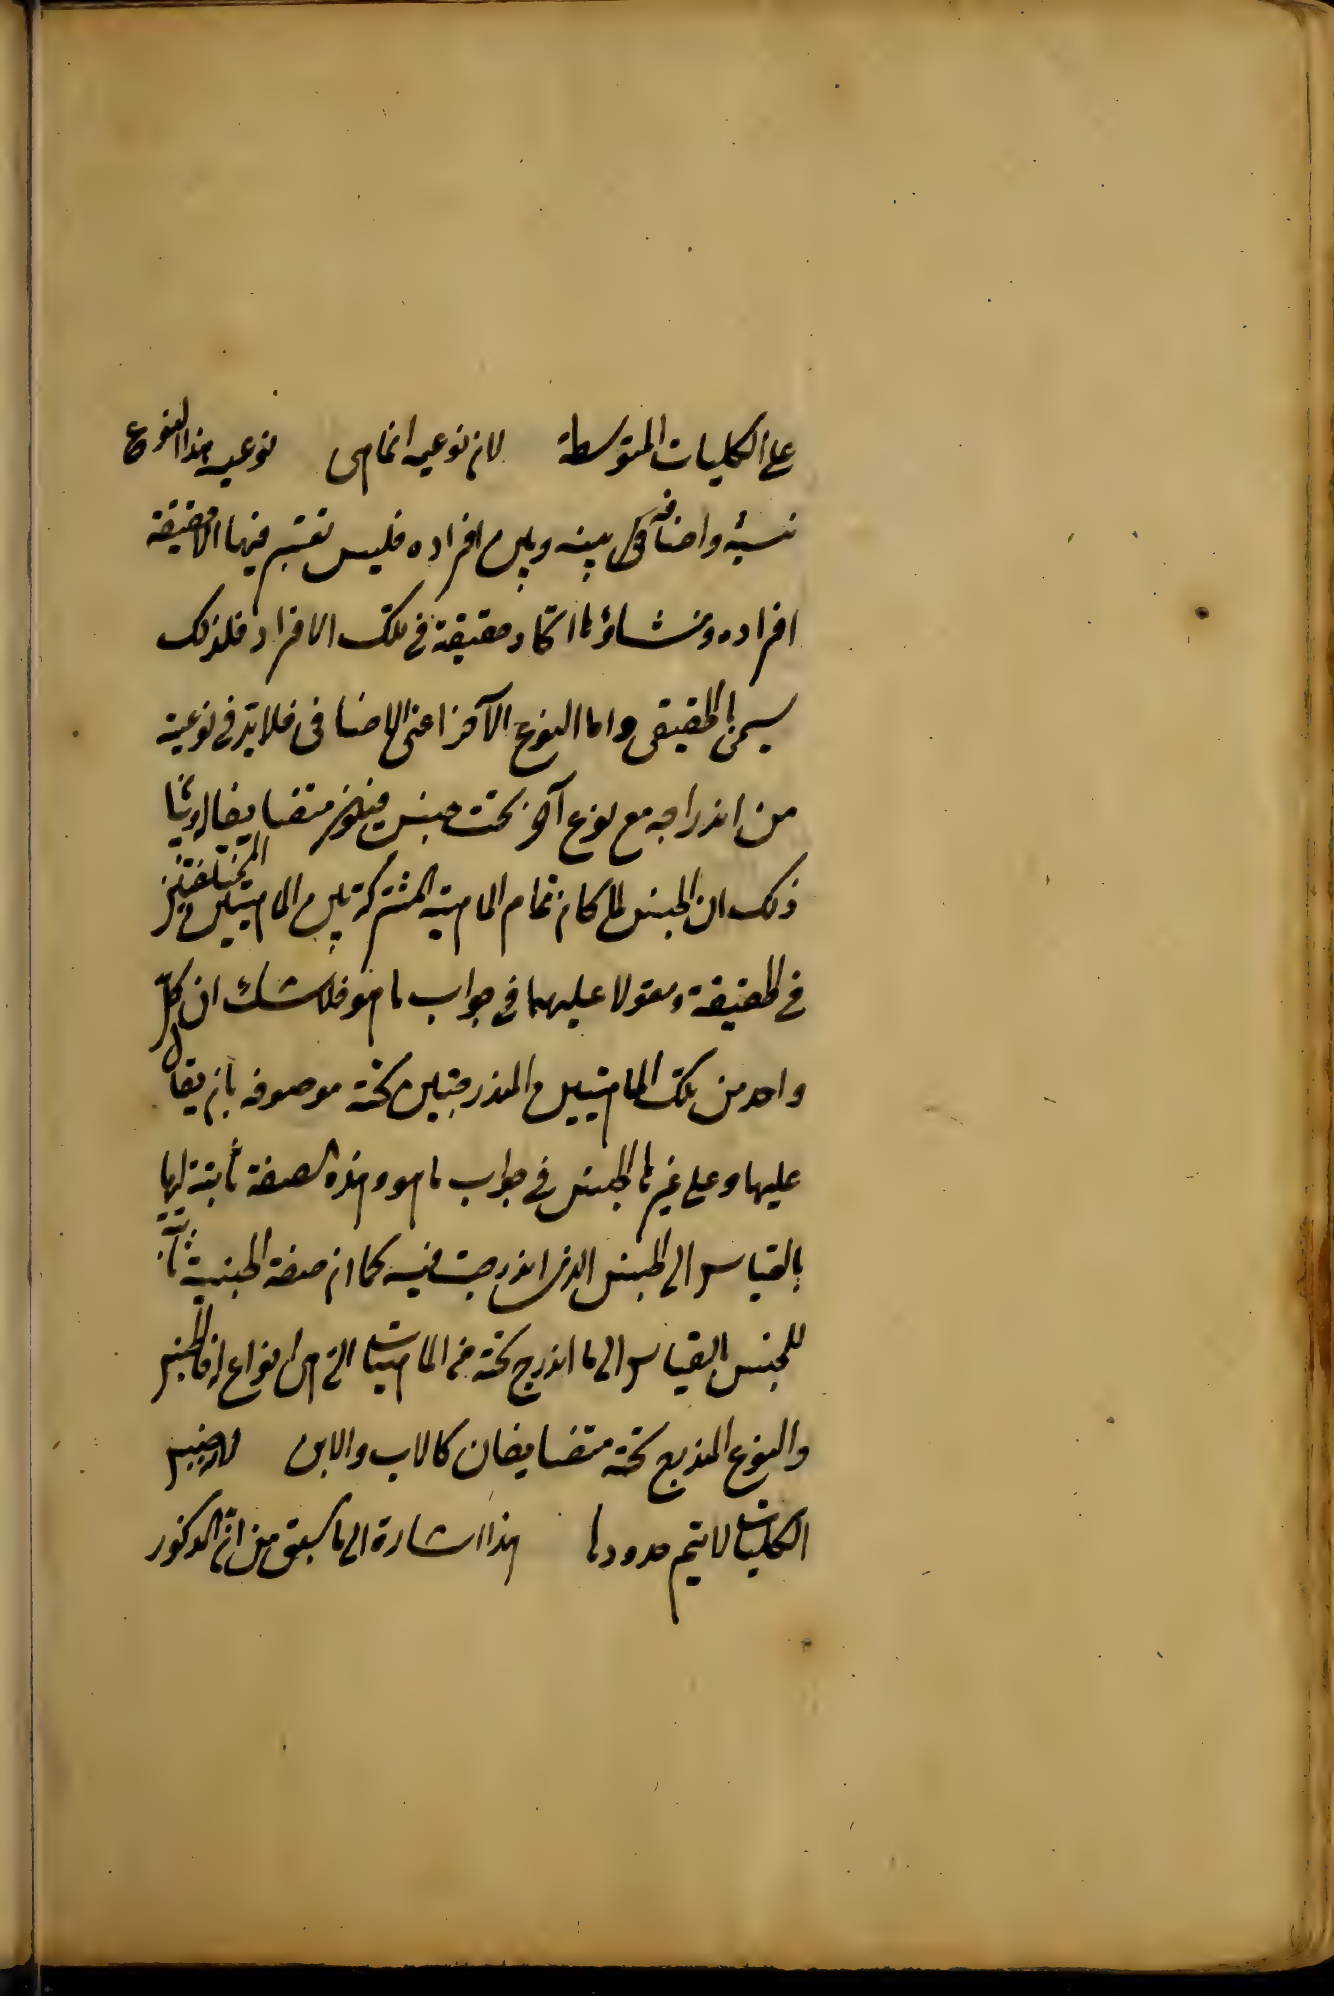 على الكليات المتوسطة لان نوعيه انما هى نوعيه هذا النوع
نسبة واضافة بينه وبين افراده فليس تعتبر فيها الا حقيقة
افراده ومنشاؤها اتحاد حقيقة فى تلك الافراد فلذلك
سمى بالحقيقى واما النوع الآخر اعنى الاضافى فلا بد فى نوعية
من اندراجه مع نوع آخر تحت جنس متضايفا
ذلك ان الجنس لما كان تمام الماهية المشتركة بين الماهيتين المختلفتين
فى الحقيقة ومقولا عليهما فى جواب ما هو فلا شك ان كل
واحد من تلك الماهيتين المندرجتين تحته موصوفه بانه يقال
عليها وعلى غيرها الجنس فى جواب ما هو وهذه الصفة ثابتة لها
بالقياس الى الجنس الذى اندرجت فيه كما ان صفة الجنسية ثابتة
للجنس بالقياس الى ما اندرج تحته من الماهيات التى هى انواع له فالجنس
والنوع المندرج تحته متضايفان كالاب والابن
الكليات لا يتم حدودها هذا اشارة الى ما سبق من ان المذكور